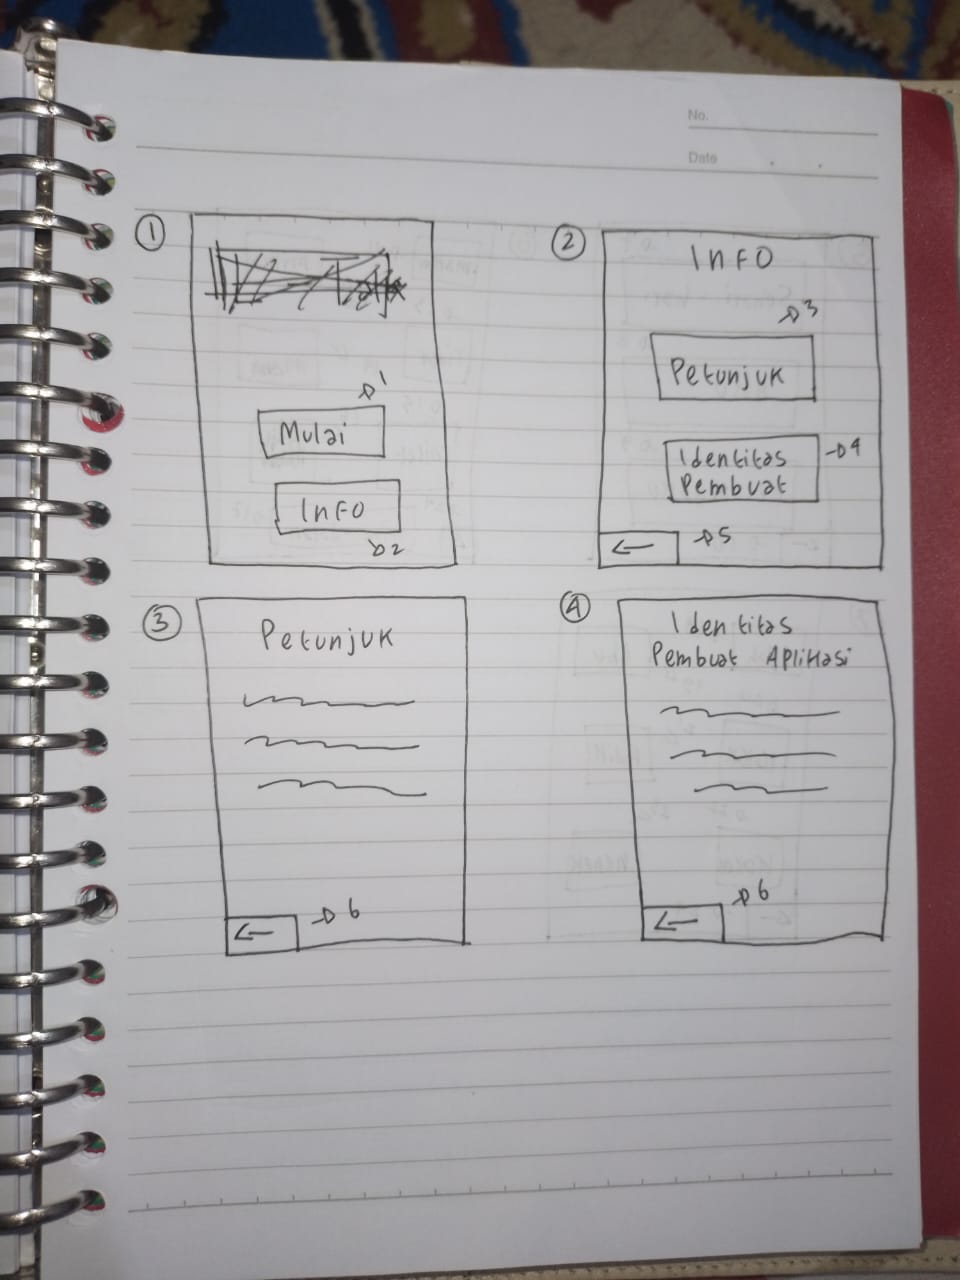 No.
Date
1
1
Mulai
Info
2
2
Info
3
Petunjuk
Identitas
Pembuat
4
←
5
3
Petunjuk
←
6
4
Identitas
Pembuat Aplikasi
←
6